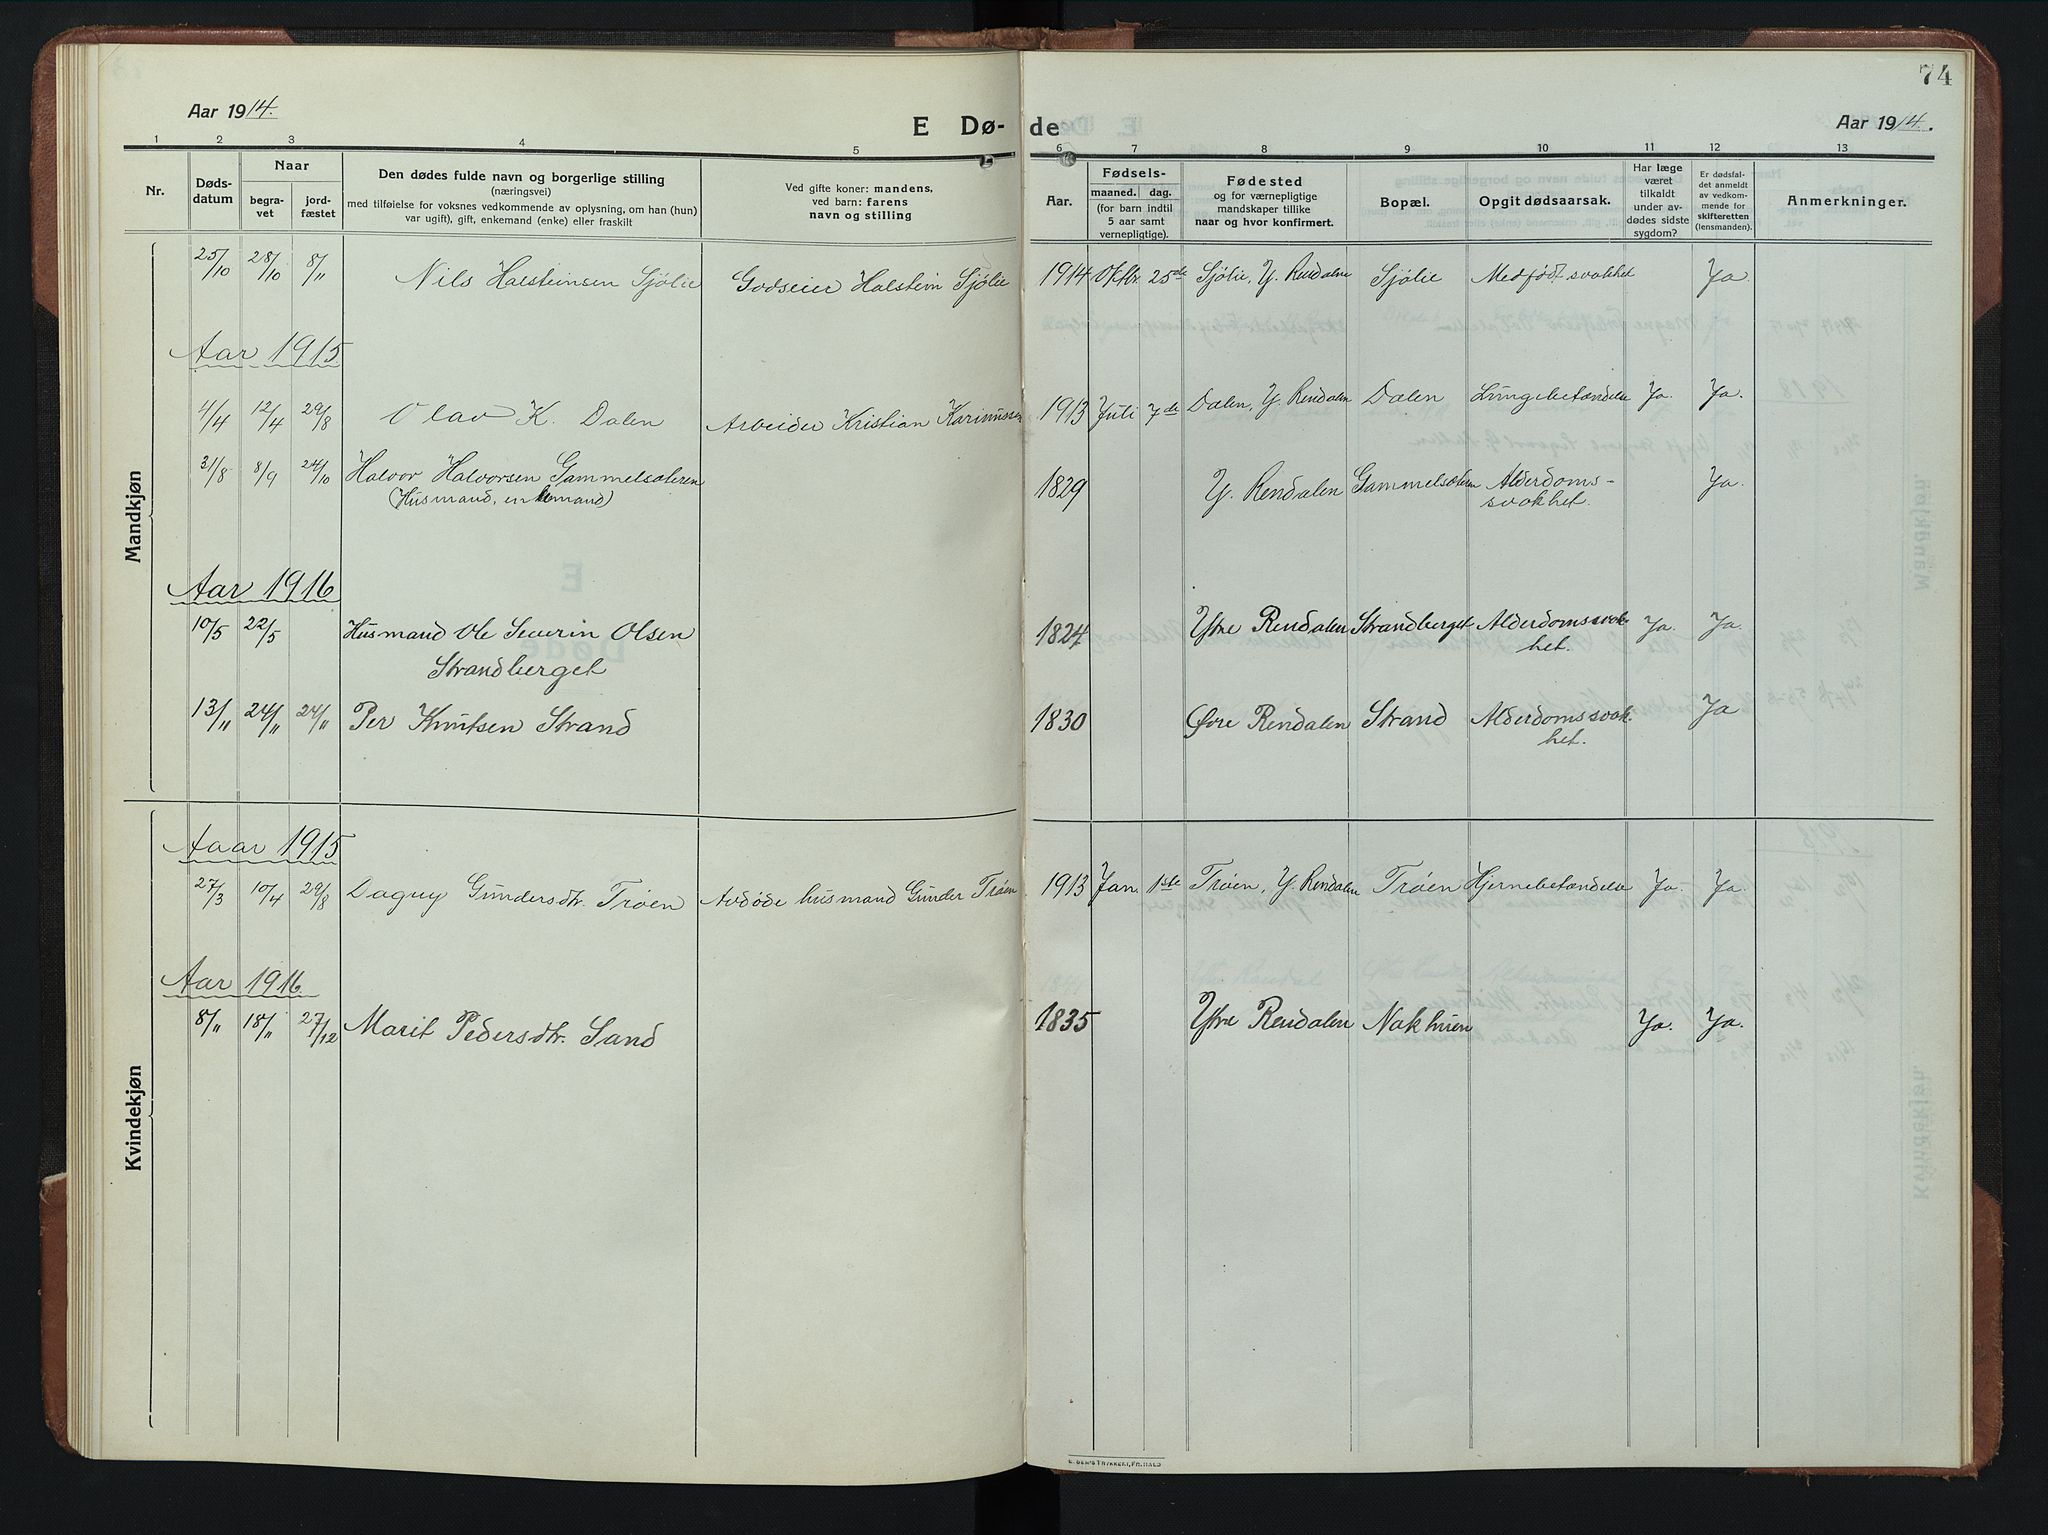 74
Aar 1914.
E Dø-
de
Aar 1914.
1 2 3 4 5 6 7 8 9 10 11 12 13
Nr.
Døds-
datum
Naar
begra-
vet
jord-
fæstet
Den dødes fulde navn og borgerlige stilling
(næringsvei)
med tilføielse for voksnes vedkommende av oplysning, om han (hun)
var ugift), gift, enkemand (enke) eller fraskilt
Ved gifte koner: mandens,
ved barn: farens
navn og stilling
Aar.
Fødsels-
maaned. dag.
(for barn indtil
5 aar samt
vernepligtige).
Fødested
og for værnepligtige
mandskaper tillike
naar og hvor konfirmert.
Bopæl.
Opgit dødsaarsak.
Har læge
været
tilkaldt
under av-
dødes sidste
sygdom?
Er dødsfal-
det anmeldt
av vedkom-
mende for
skifteretten
(lensmanden).
Anmerkninger.
Mandkjøn
25/10 28/10 8/11 Nils Halsteinsen Sjølie Godseier Halstein Sjølie 1914 Oktbr. 25de Sjølie, Y. Rendalen Sjølie Medfødt svakhet Ja.
Aar 1915
4/4 12/4 29/8 Olav K. Dalen Arbeider Kristian Karinussen 1913 Juli 7de Dalen, Y. Rendalen Dalen Lungebetændelse Ja. Ja.
31/8 8/9 24/10 Halvor Halvorsen Gammelsæteren 1829 Y. Rendalen Gammelsæteren Alderdoms- Ja.
(Husmand, enkemand) svakhet.
Aar 1916
10/5 22/5 Husmand Ole Severin Olsen 1824 Ytre Rendalen Strandberget Alderdomssvak- Ja. Ja.
Strandberget het.
13/11 24/11 24/11 Per Knutsen Strand 1830 Øvre Rendalen Strand Alderdomssvak- Ja
het.
Kvindekjøn
Aaar 1915
27/3 10/4 29/8 Dagny Gundersdtr. Trøen Avdøde husmand Gunder Trøen 1913 Jan. 1ste Trøen, Y. Rendalen Trøen Hjernebetændelse Ja. Ja.
Aar 1916.
8/11 18/11 27/12 Marit Pedersdtr. Sand 1835 Ytre Rendalen Nakhuen Ja. Ja.